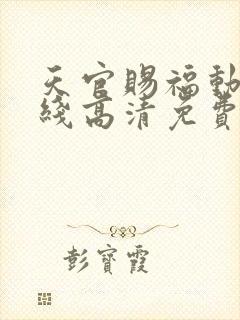 天官賜福動
綫高清免費
彭寶霞